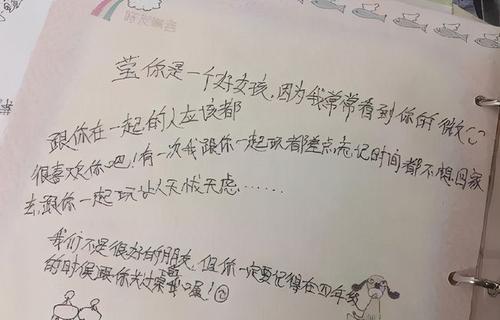 莹你是一个好女孩,因为我常常看到你的微
跟你在一起的人应该都
很喜欢你吧!有一次我跟你一起玩都差点忘记时间都不想回家
去,跟你一起玩让人无忧无虑……
我们不是很好的朋友,但你一定要记得在四年级
的时候跟你